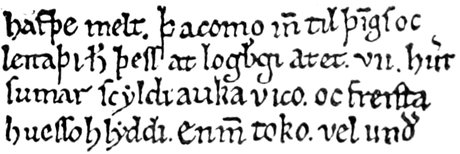 hafþe melt. þ acomo m̄ til þīgſ oc
leitaþi ħ þeſſ at logb͛gi at et. vii. hu͛t
ſumar ſcẏldi auka vico. oc freiſta
hueſſo hlẏddi. En m̄ toko. vel und͛